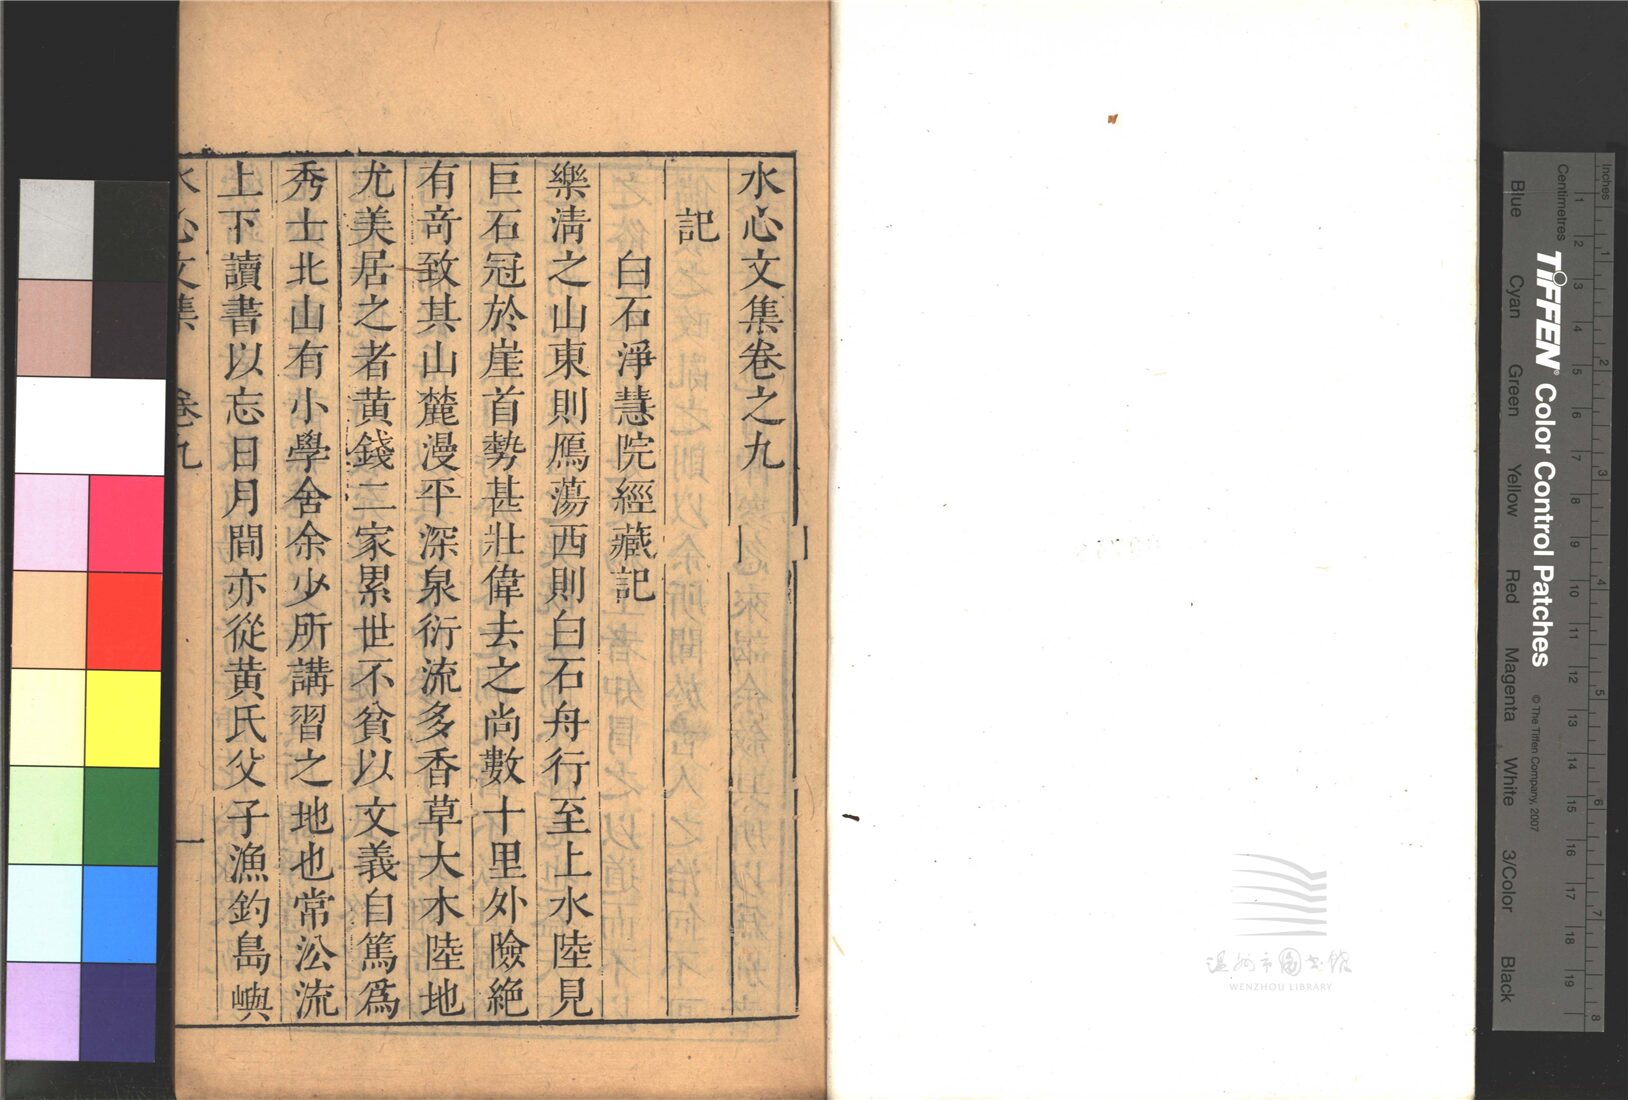 水心文集卷之九
記
白石淨慧院經藏記
樂清之山東則鴈蕩西則白石舟行至上水陸見
巨石冠於崖首勢甚壯偉去之尚數十里外險絶
有竒致其山麓漫平深泉衍流多香草大木陸地
尤美居之者黃錢二家累世不貧以文義自篤爲
秀士北山有小學舍余少所講習之地也常㳂流
上下讀書以忘日月間亦從黃氏父子漁釣島嶼
水心文集 卷九 一
温州市图书馆
WENZHOU LIBRARY
Inches
Centimetres
TIFFEN® Color Control Patches
© The Tiffen Company, 2007
Blue Cyan Green Yellow Red Magenta White 3/Color Black
1 2 3 4 5 6 7 8 9 10 11 12 13 14 15 16 17 18 19
1 2 3 4 5 6 7 8